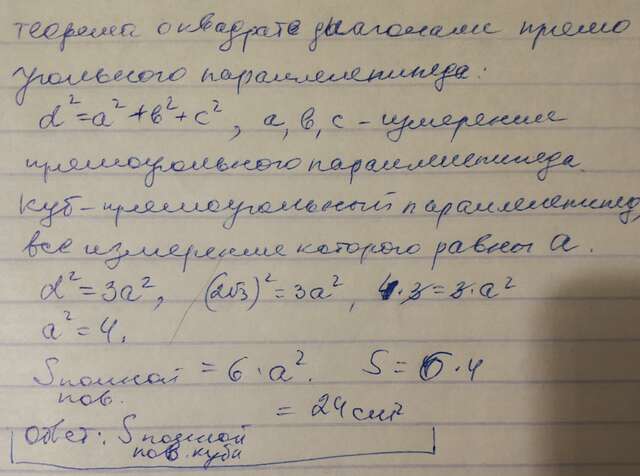 теорема о квадрате диагонали прямо
угольного параллелепипеда:
d² = a² + b² + c², a, b, c - измерение
прямоугольного параллелепипеда.
Куб - прямоугольный параллелепипед,
все измерение которого равны a.
d² = 3a², (2√3)² = 3a², 4·3 = 3·a²
a² = 4.
Sполной пов. = 6·a². S = 6·4
= 24 см²
Ответ: Sполной пов. куба